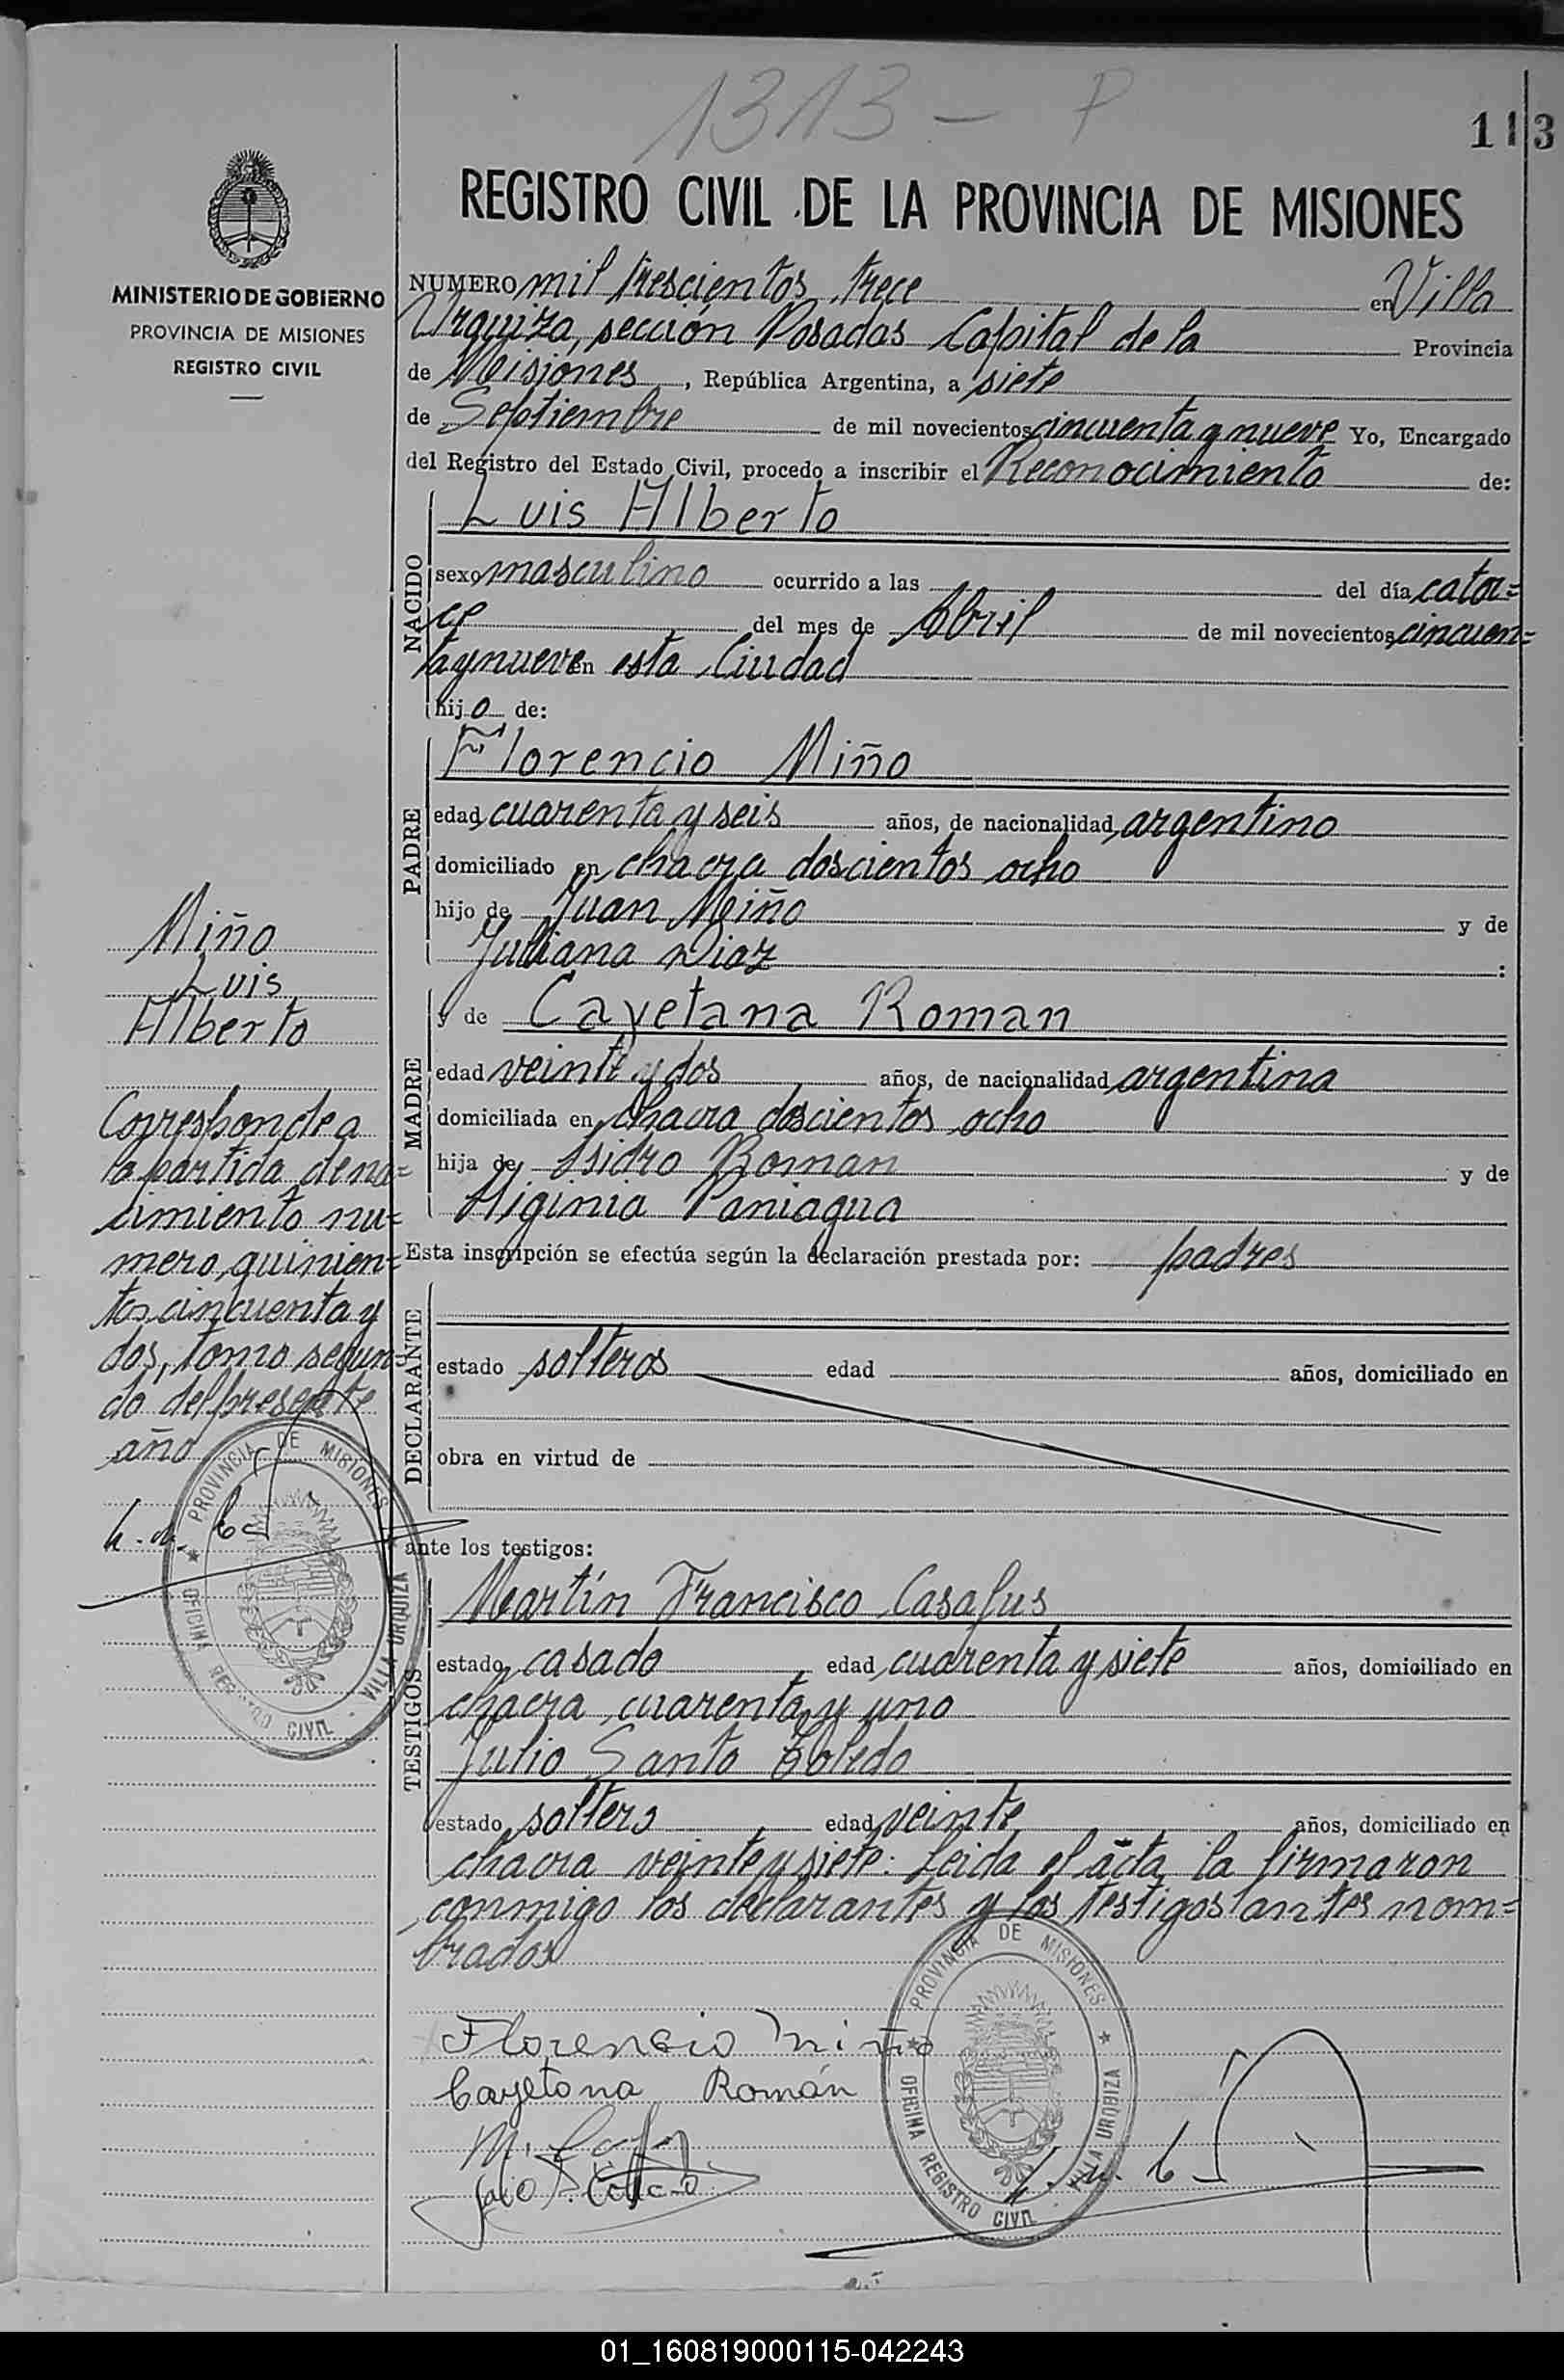 1313 - P
113
REGISTRO CIVIL DE LA PROVINCIA DE MISIONES
MINISTERIO DE GOBIERNO
PROVINCIA DE MISIONES
REGISTRO CIVIL
NUMERO mil trescientos trece en Villa
Urquiza, sección Posadas Capital de la Provincia
de Misiones, República Argentina, a siete
de Septiembre de mil novecientos cincuenta y nueve Yo, Encargado
del Registro del Estado Civil, procedo a inscribir el Reconocimiento de:
NACIDO
Luis Alberto
sexo masculino ocurrido a las del día cator=
ce del mes de Abril de mil novecientos cincuen=
ta y nueve en esta Ciudad
hijo de:
PADRE
Florencio Miño
edad cuarenta y seis años, de nacionalidad argentino
domiciliado en chacra doscientos ocho
hijo de Juan Miño y de
Juliana Diaz :
MADRE
y de Cayetana Roman
edad veinte y dos años, de nacionalidad argentina
domiciliada en chacra doscientos ocho
hija de Isidro Roman y de
Higinia Paniagua
Esta inscripción se efectúa según la declaración prestada por: padres
DECLARANTE
estado solteros edad años, domiciliado en
obra en virtud de
ante los testigos:
TESTIGOS
Martín Francisco Casafus
estado casado edad cuarenta y siete años, domiciliado en
chacra cuarenta y uno
Julio Santo Toledo
estado soltero edad veinte años, domiciliado en
chacra veinte y siete: Leida el acta la firmaron
conmigo los declarantes y los testigos antes nom=
brados
Florencio Miño
Cayetana Román
Miño
Luis
Alberto
Corresponde a
la partida de na=
cimiento nu=
mero quinien=
tos cincuenta y
dos, tomo segun=
do del presente
año
PROVINCIA DE MISIONES
OFICINA REGISTRO CIVIL - VILLA URQUIZA
PROVINCIA DE MISIONES
OFICINA REGISTRO CIVIL - VILLA URQUIZA
01_160819000115-042243